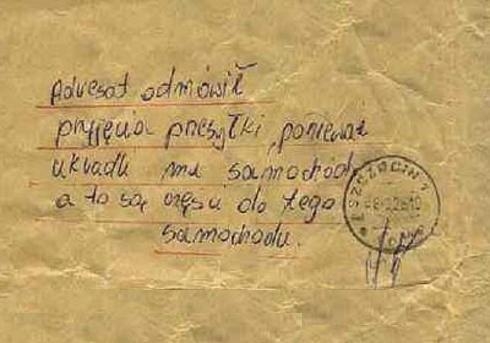 Adresat odmówił
przyjęcia przesyłki, ponieważ
ukradli mu samochód
a to są części do tego
samochodu.
SZCZECIN 1